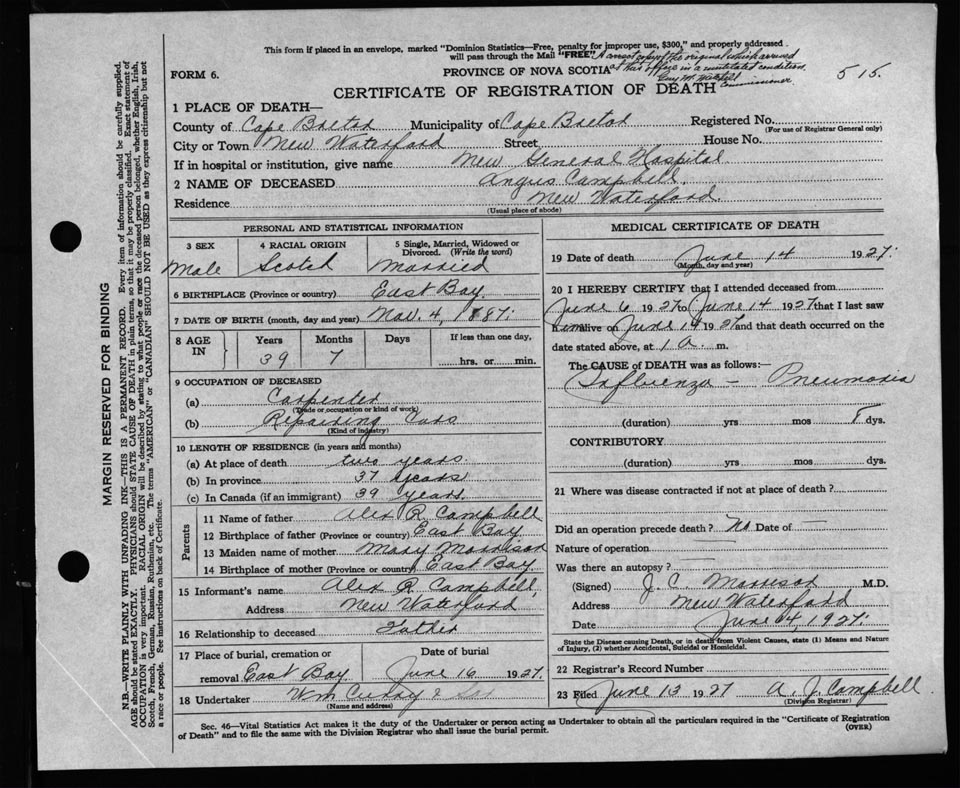 This form if placed in an envelope, marked "Dominion Statistics—Free, penalty for improper use, $300," and properly addressed
will pass through the Mail "FREE" A correct copy of the original which arrived
at this office in a mutilated condition.
Commissioner.
515.
FORM 6.
PROVINCE OF NOVA SCOTIA
CERTIFICATE OF REGISTRATION OF DEATH
1 PLACE OF DEATH—
County of Cape Breton Municipality of Cape Breton Registered No.
(For use of Registrar General only)
City or Town New Waterford Street, House No.
If in hospital or institution, give name New General Hospital
2 NAME OF DECEASED Angus Campbell,
Residence New Waterford.
(Usual place of abode)
PERSONAL AND STATISTICAL INFORMATION
3 SEX 4 RACIAL ORIGIN 5 Single, Married, Widowed or Divorced. (Write the word)
Male Scotch Married
6 BIRTHPLACE (Province or country) East Bay.
7 DATE OF BIRTH (month, day and year) Nov. 4, 1887.
8 AGE IN Years Months Days If less than one day,
39 7 hrs. or min.
9 OCCUPATION OF DECEASED
(a) Carpenter
(Trade or occupation or kind of work)
(b) Repairing Cars
(Kind of industry)
10 LENGTH OF RESIDENCE (in years and months)
(a) At place of death two years.
(b) In province 37 years
(c) In Canada (if an immigrant) 39 years.
Parents
11 Name of father Alex R. Campbell
12 Birthplace of father (Province or country) East Bay
13 Maiden name of mother Mary Morrison
14 Birthplace of mother (Province or country) East Bay.
15 Informant's name Alex R. Campbell,
Address New Waterford
16 Relationship to deceased Father
17 Place of burial, cremation or Date of burial
removal East Bay June 16 1927.
18 Undertaker Wm Curry & Son
(Name and address)
MEDICAL CERTIFICATE OF DEATH
19 Date of death June 14 1927.
(Month, day and year)
20 I HEREBY CERTIFY that I attended deceased from
June 6 1927 to June 14 1927 that I last saw
him alive on June 14 1927 and that death occurred on the
date stated above, at 1 a. m.
The CAUSE of DEATH was as follows:
Influenza — Pneumonia
(duration) yrs mos 8 dys.
CONTRIBUTORY
(duration) yrs mos dys.
21 Where was disease contracted if not at place of death?
Did an operation precede death? No Date of —
Nature of operation —
Was there an autopsy? —
(Signed) J. C. Morrison M.D.
Address New Waterford
Date June 14, 1927.
State the Disease causing Death, or in death from Violent Causes, state (1) Means and Nature
of Injury, (2) whether Accidental, Suicidal or Homicidal.
22 Registrar's Record Number
23 Filed June 13 1927 A. J. Campbell
(Division Registrar)
Sec. 46—Vital Statistics Act makes it the duty of the Undertaker or person acting as Undertaker to obtain all the particulars required in the "Certificate of Registration
of Death" and to file the same with the Division Registrar who shall issue the burial permit.
(OVER)
MARGIN RESERVED FOR BINDING
N.B.—WRITE PLAINLY WITH UNFADING INK—THIS IS A PERMANENT RECORD. Every item of information should be carefully supplied.
AGE should be stated EXACTLY. PHYSICIANS should STATE CAUSE OF DEATH in plain terms, so that it may be properly classified. Exact statement of
OCCUPATION is very important. RACIAL ORIGIN will be described by stating to what people or race the deceased person belonged, whether English, Irish,
Scotch, French, German, Russian, Ruthenian, etc. The terms "AMERICAN" or "CANADIAN" SHOULD NOT BE USED as they express citizenship but not
a race or people. See instructions on back of Certificate.